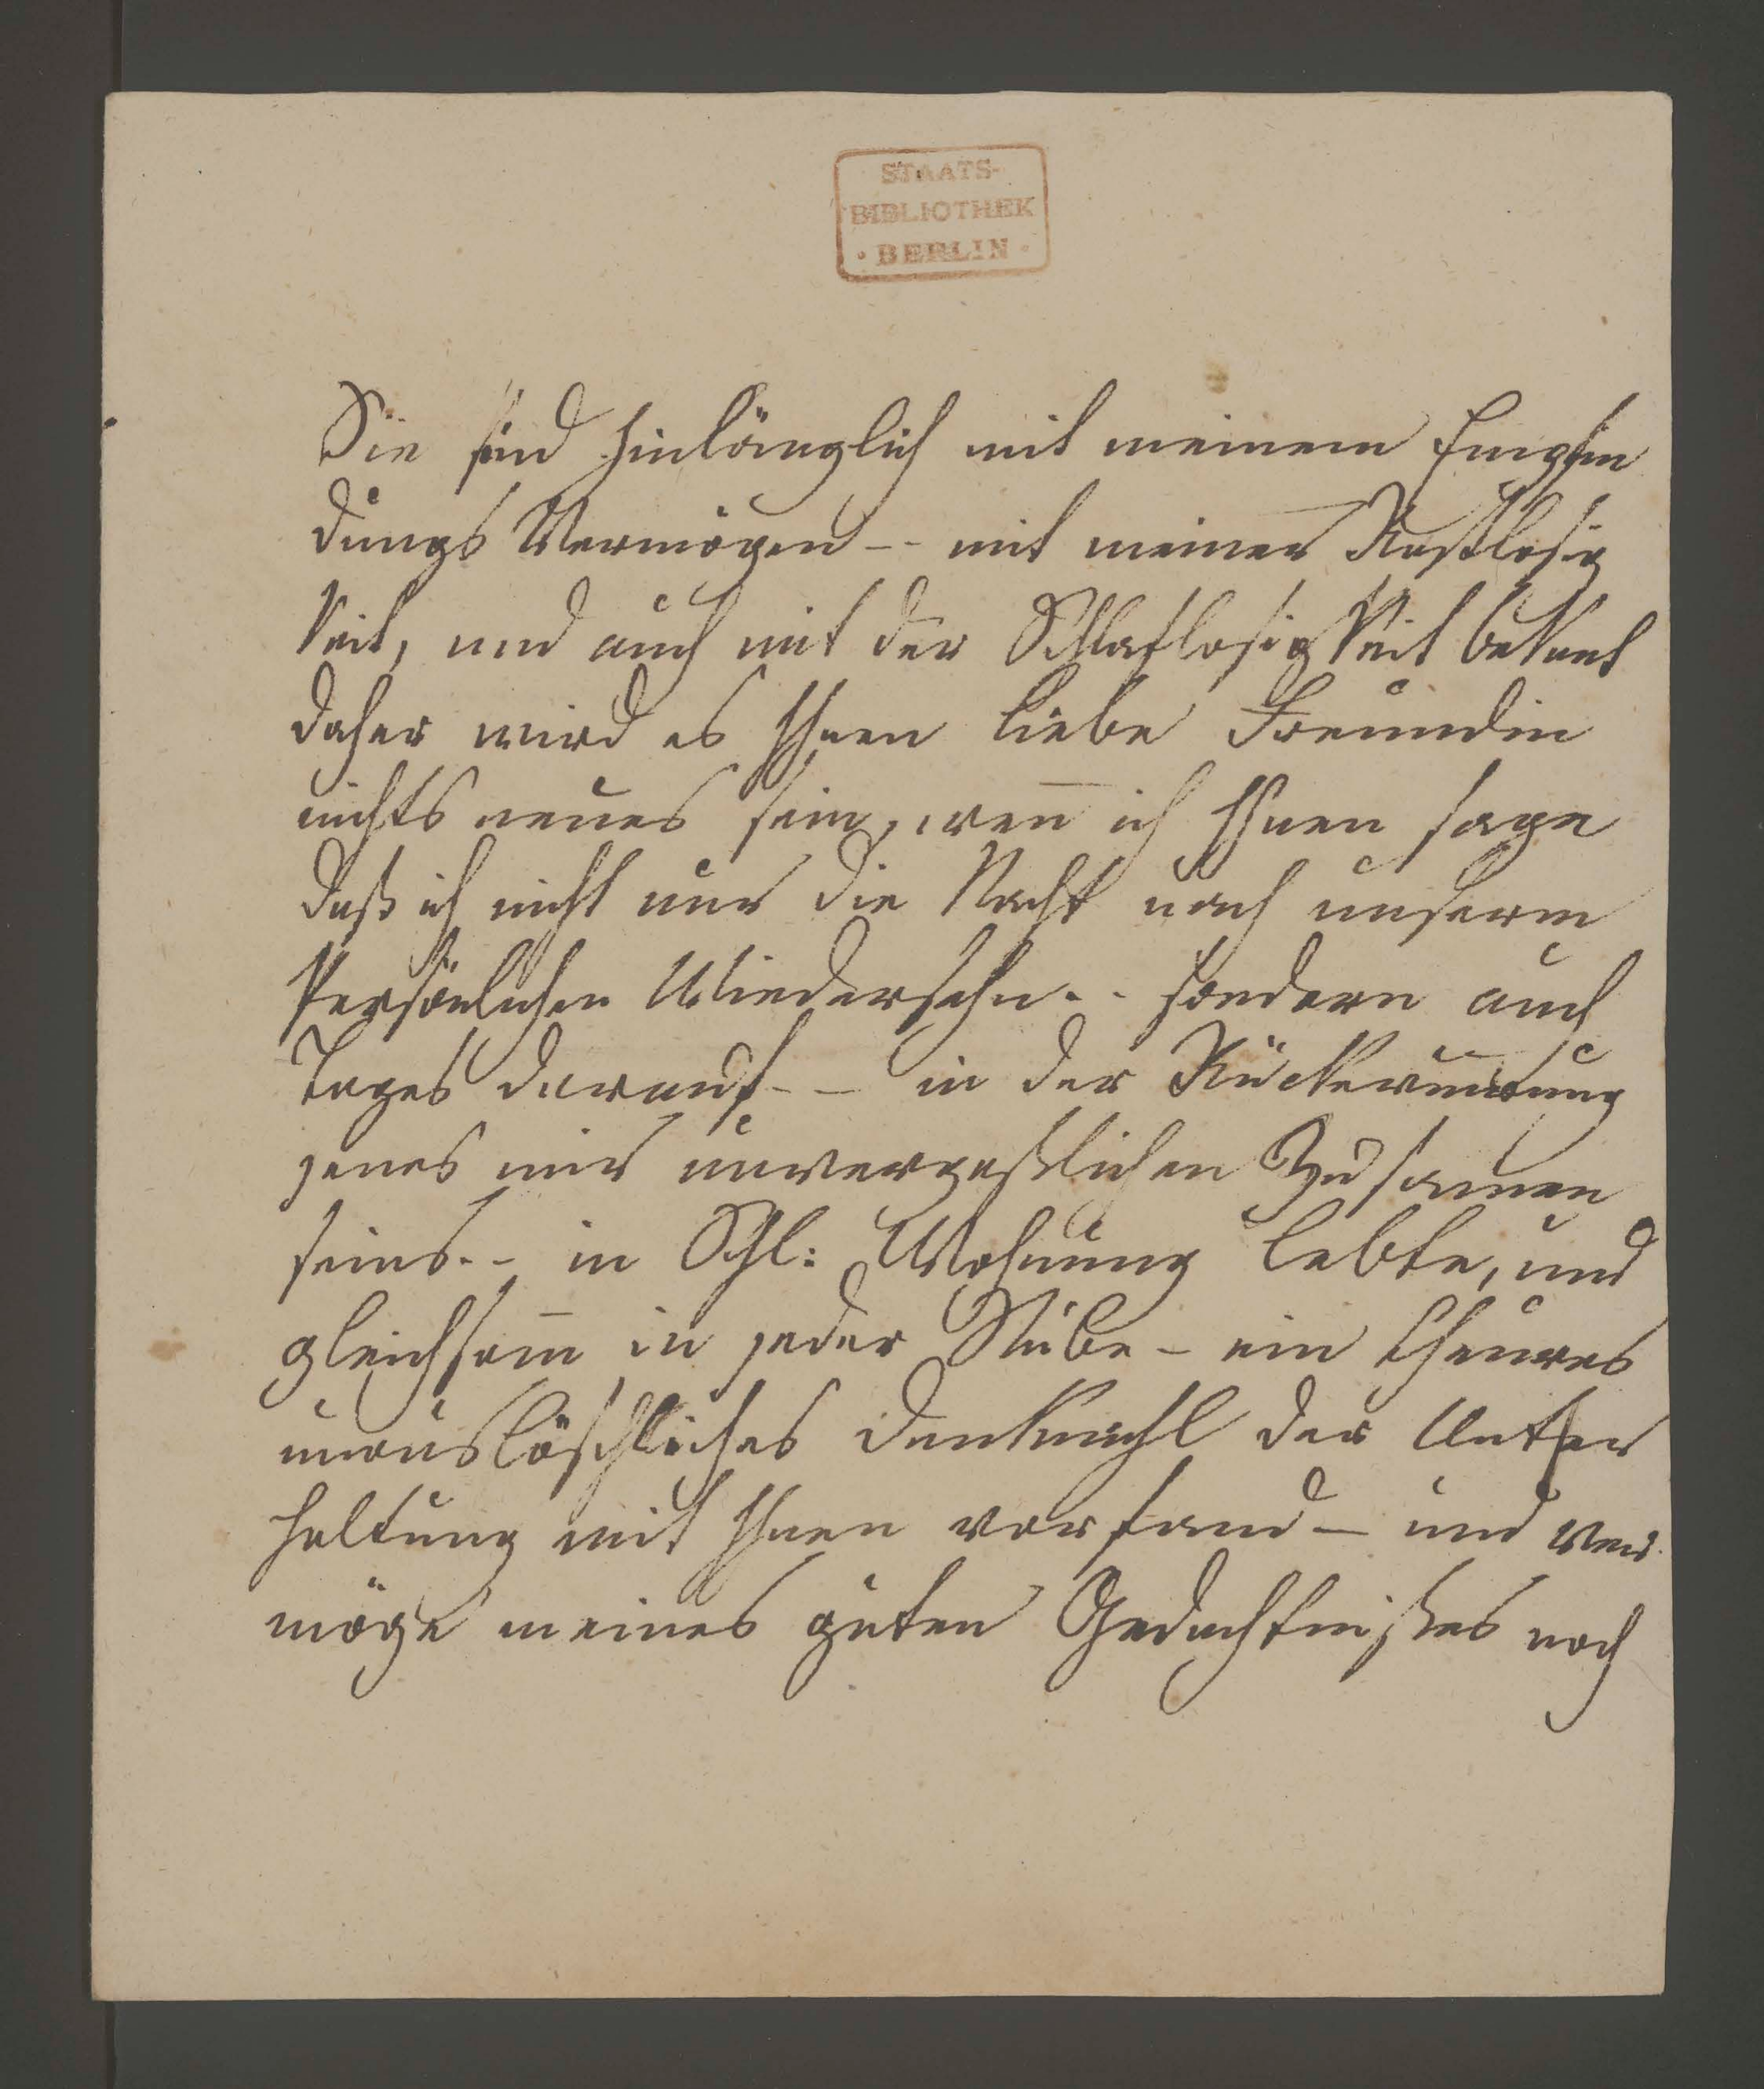 STAATS-
BIBLIOTHEK
· BERLIN ·
Sie sind hinlänglich mit meinem Empfin
dungs Vermögen -- mit meiner Rastlosig
keit, und auch mit der Schlaflosigkeit bekant
daher wird es Ihnen liebe Freundin
nichts neues sein, weñ ich Ihnen sage
daß ich nicht nur die Nacht nach unserm
Persönlichen Wiedersehn -- sondern auch
Tages darauf -- in der Rück
jenes mir unvergeßlichen Zusamen
seins -- in Schl: Wohnung lebte, und
gleichsam̄ in jeder Stube - ein theures
unauslöschliches Denkmahl der Unter
haltung mit Ihnen vorfand - und ver
möge meines guten Gedächtnißes noch